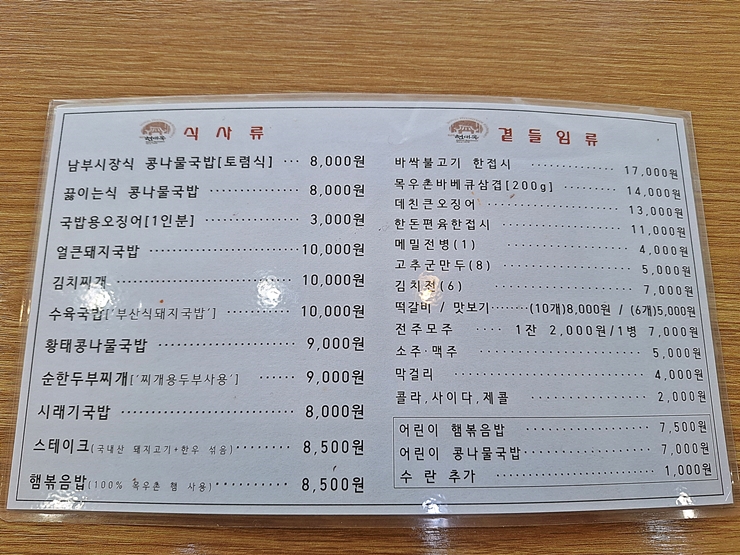 식사류
남부시장식 콩나물국밥[토렴식] ··· 8,000원
끓이는식 콩나물국밥 ········ 8,000원
국밥용오징어[1인분] ········ 3,000원
얼큰돼지국밥 ················ 10,000원
김치찌개 ···················· 10,000원
수육국밥['부산식돼지국밥'] ······ 10,000원
황태콩나물국밥 ·············· 9,000원
순한두부찌개['찌개용두부사용'] ······ 9,000원
시래기국밥 ·················· 8,000원
스테이크(국내산 돼지고기+한우 섞음) ······ 8,500원
햄볶음밥(100% 목우촌 햄 사용) ········ 8,500원
곁들임류
바싹불고기 한접시 ············ 17,000원
목우촌바베큐삼겹[200g] ········ 14,000원
데친큰오징어 ················ 13,000원
한돈편육한접시 ·············· 11,000원
메밀전병(1) ················ 4,000원
고추군만두(8) ·············· 5,000원
김치전(6) ·················· 7,000원
떡갈비 / 맛보기 ······ (10개)8,000원 / (6개)5,000원
전주모주 ······ 1잔 2,000원/1병 7,000원
소주·맥주 ·················· 5,000원
막걸리 ···················· 4,000원
콜라,사이다,제콜 ············ 2,000원
어린이 햄볶음밥 ·············· 7,500원
어린이 콩나물국밥 ············ 7,000원
수란추가 ·················· 1,000원